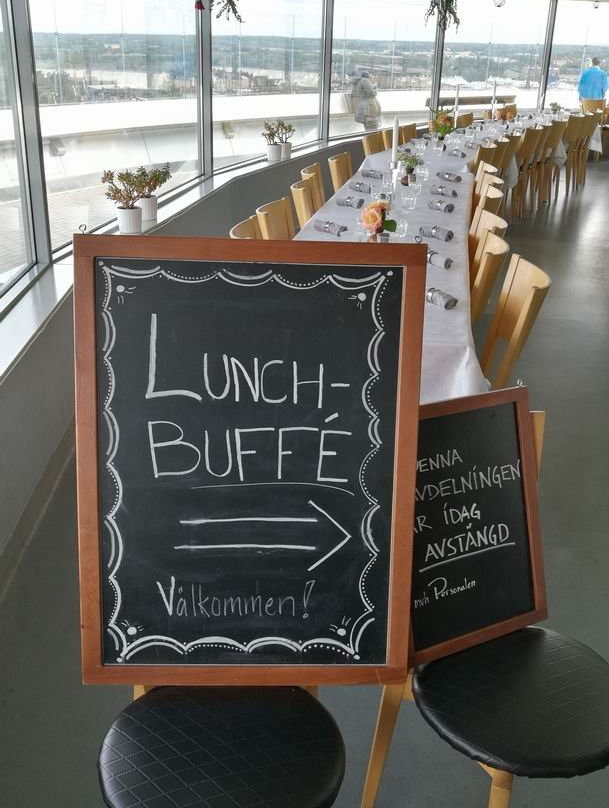 LUNCH-
BUFFÉ
Välkommen!
DENNA
AVDELNINGEN
ÄR IDAG
AVSTÄNGD
mvh Personalen